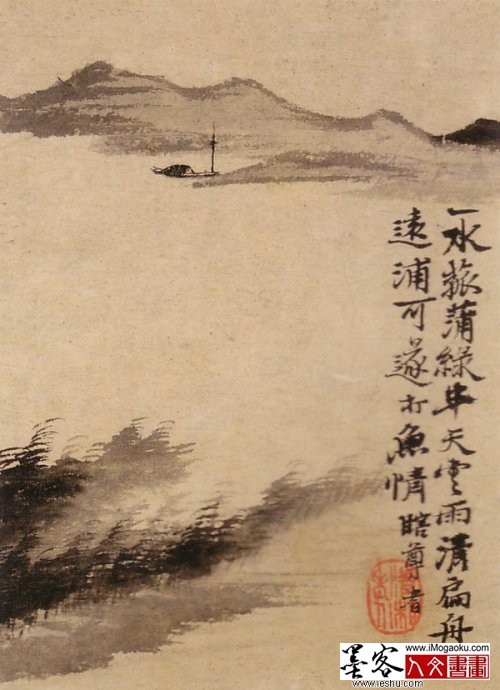 一水菰蒲綠半天雲雨清扁舟
遠浦可遂打魚情 瞎尊者
墨客
www.iMogaoku.com
人文書畫
www.ieshu.com